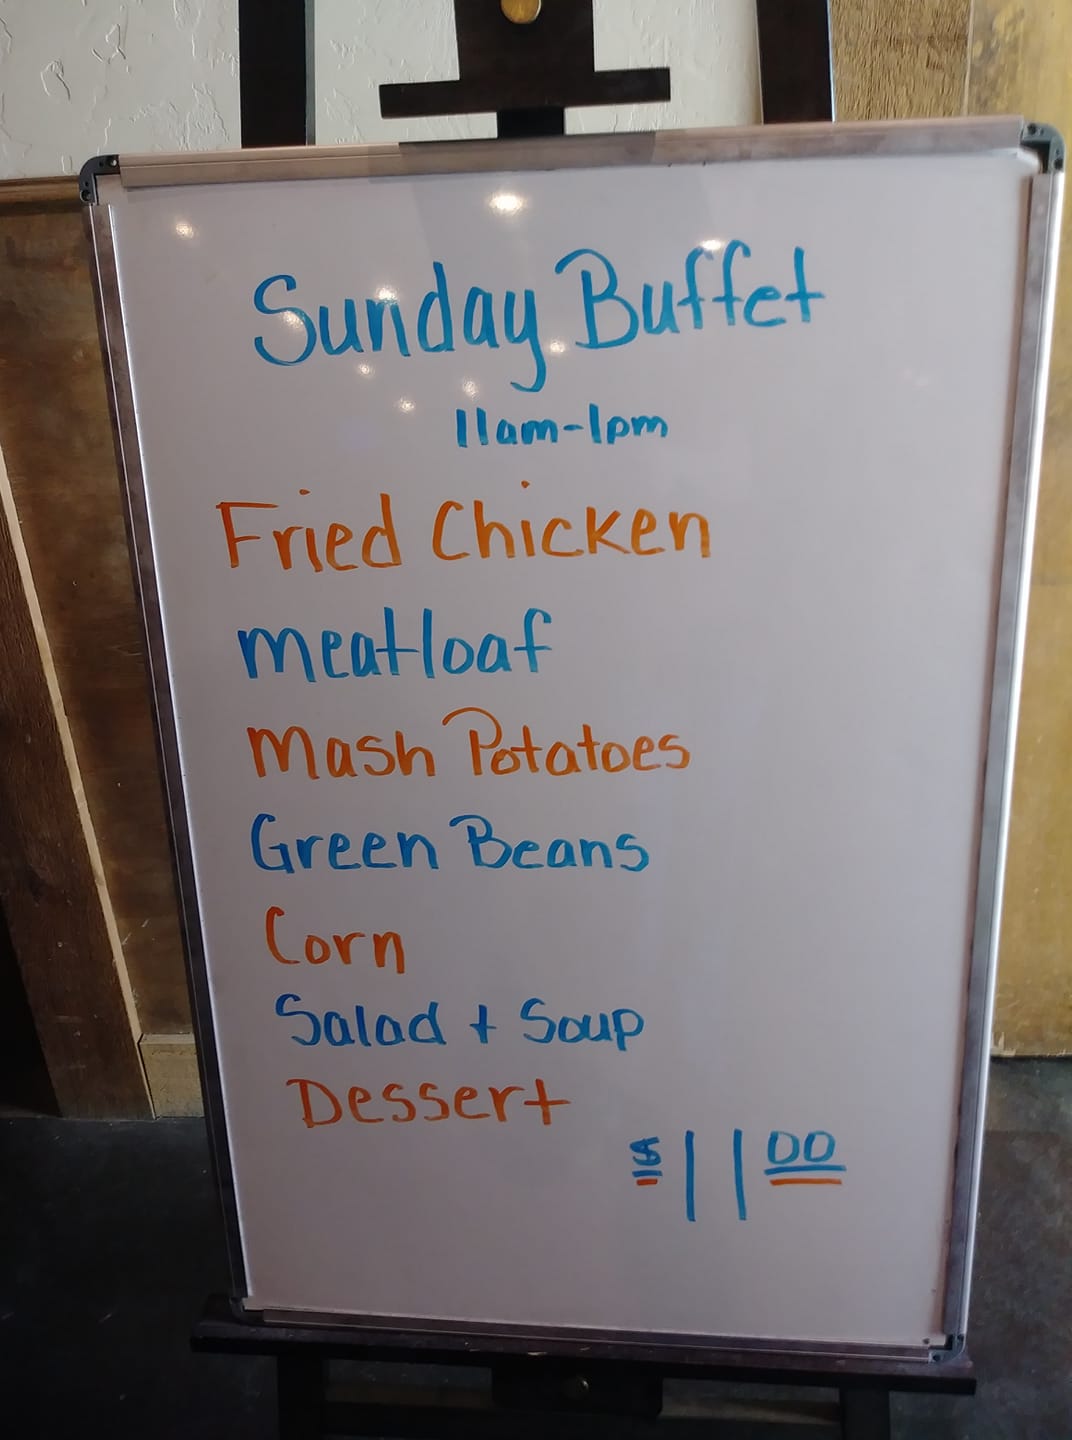 Sunday Buffet
11am-1pm
Fried Chicken
meatloaf
Mash Potatoes
Green Beans
Corn
Salad + Soup
Dessert
$11 00